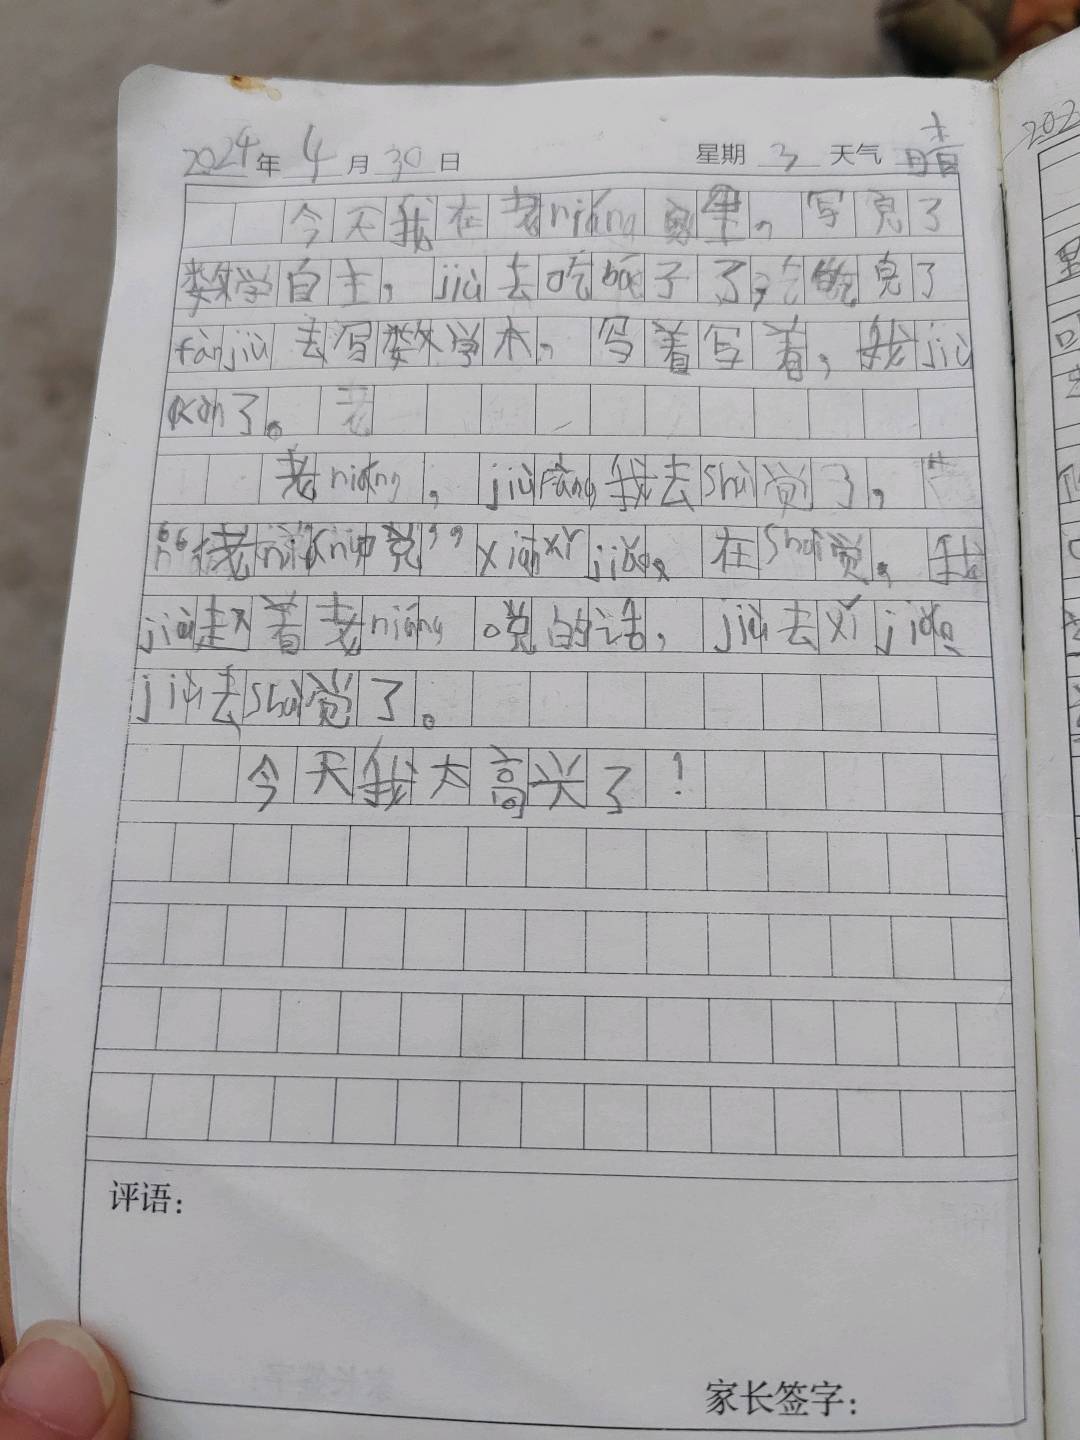 2024年 4 月 30 日 星期 3 天气 晴
今天我在老niáng家里，写完了
数学自主，jiù去吃bāo子了，吃完了
fànjiù去写数学本，写着写着，我jiù
kùn了。老
老niáng，jiùràng我去shuì觉了，
“老niáng说”xiānxǐjiǎo，在shuì觉。我
jiù赵着老niáng说的话，jiù去xǐjiǎo
jiù去shuì觉了。
今天我太高兴了！
评语：
家长签字：
202